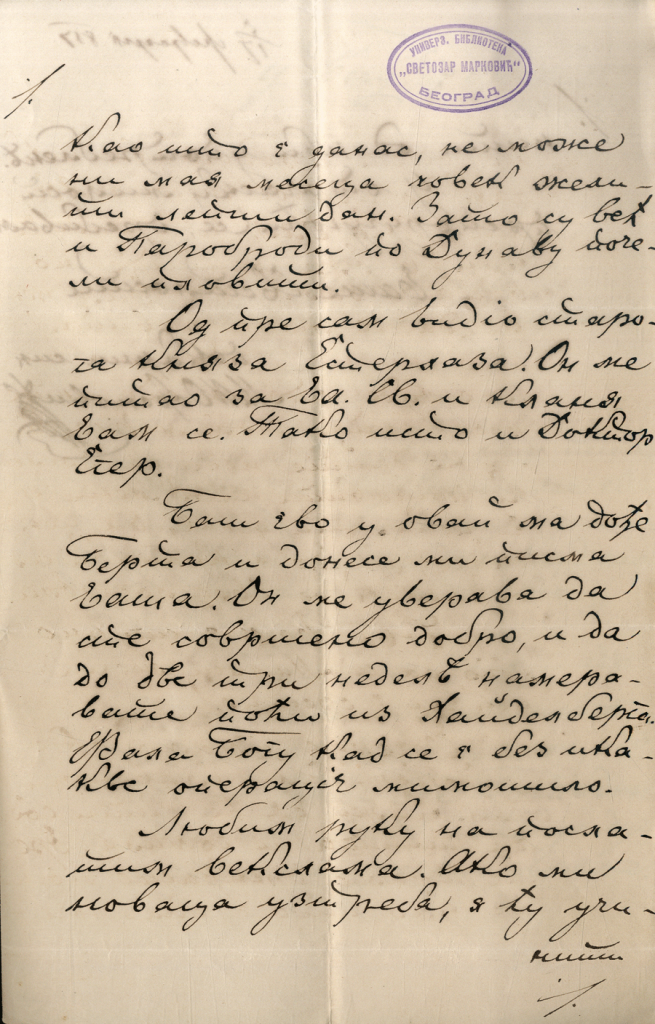 УНИВЕРЗ. БИБЛИОТЕКА
„СВЕТОЗАР МАРКОВИЋ“
БЕОГРАД
./.
Као што є данас, не може
ни мая месеца човек жели-
ти лепши дан. Зато су већ
и Пароброди по Дунаву поче-
ли пловити.
Од пре сам видіо старо-
га Княза Естерхаза. Он ме
питао за Ва. Св. и кланя
Вам се. Тако исто и Доктор
Егер.
Баш ево у овай ма дође
Берта и донесе ми писма
Ваша. Он ме уверава да
сте совршено добро, и да
до две три неделѣ намера-
вате поћи из Хайделберга.
Фала Богу кад се є без ика-
кве операціє мимоишло.
Любим руку на посла-
тим векслама. Ако ми
новаца узтреба, я ћу учи-
нити
./.